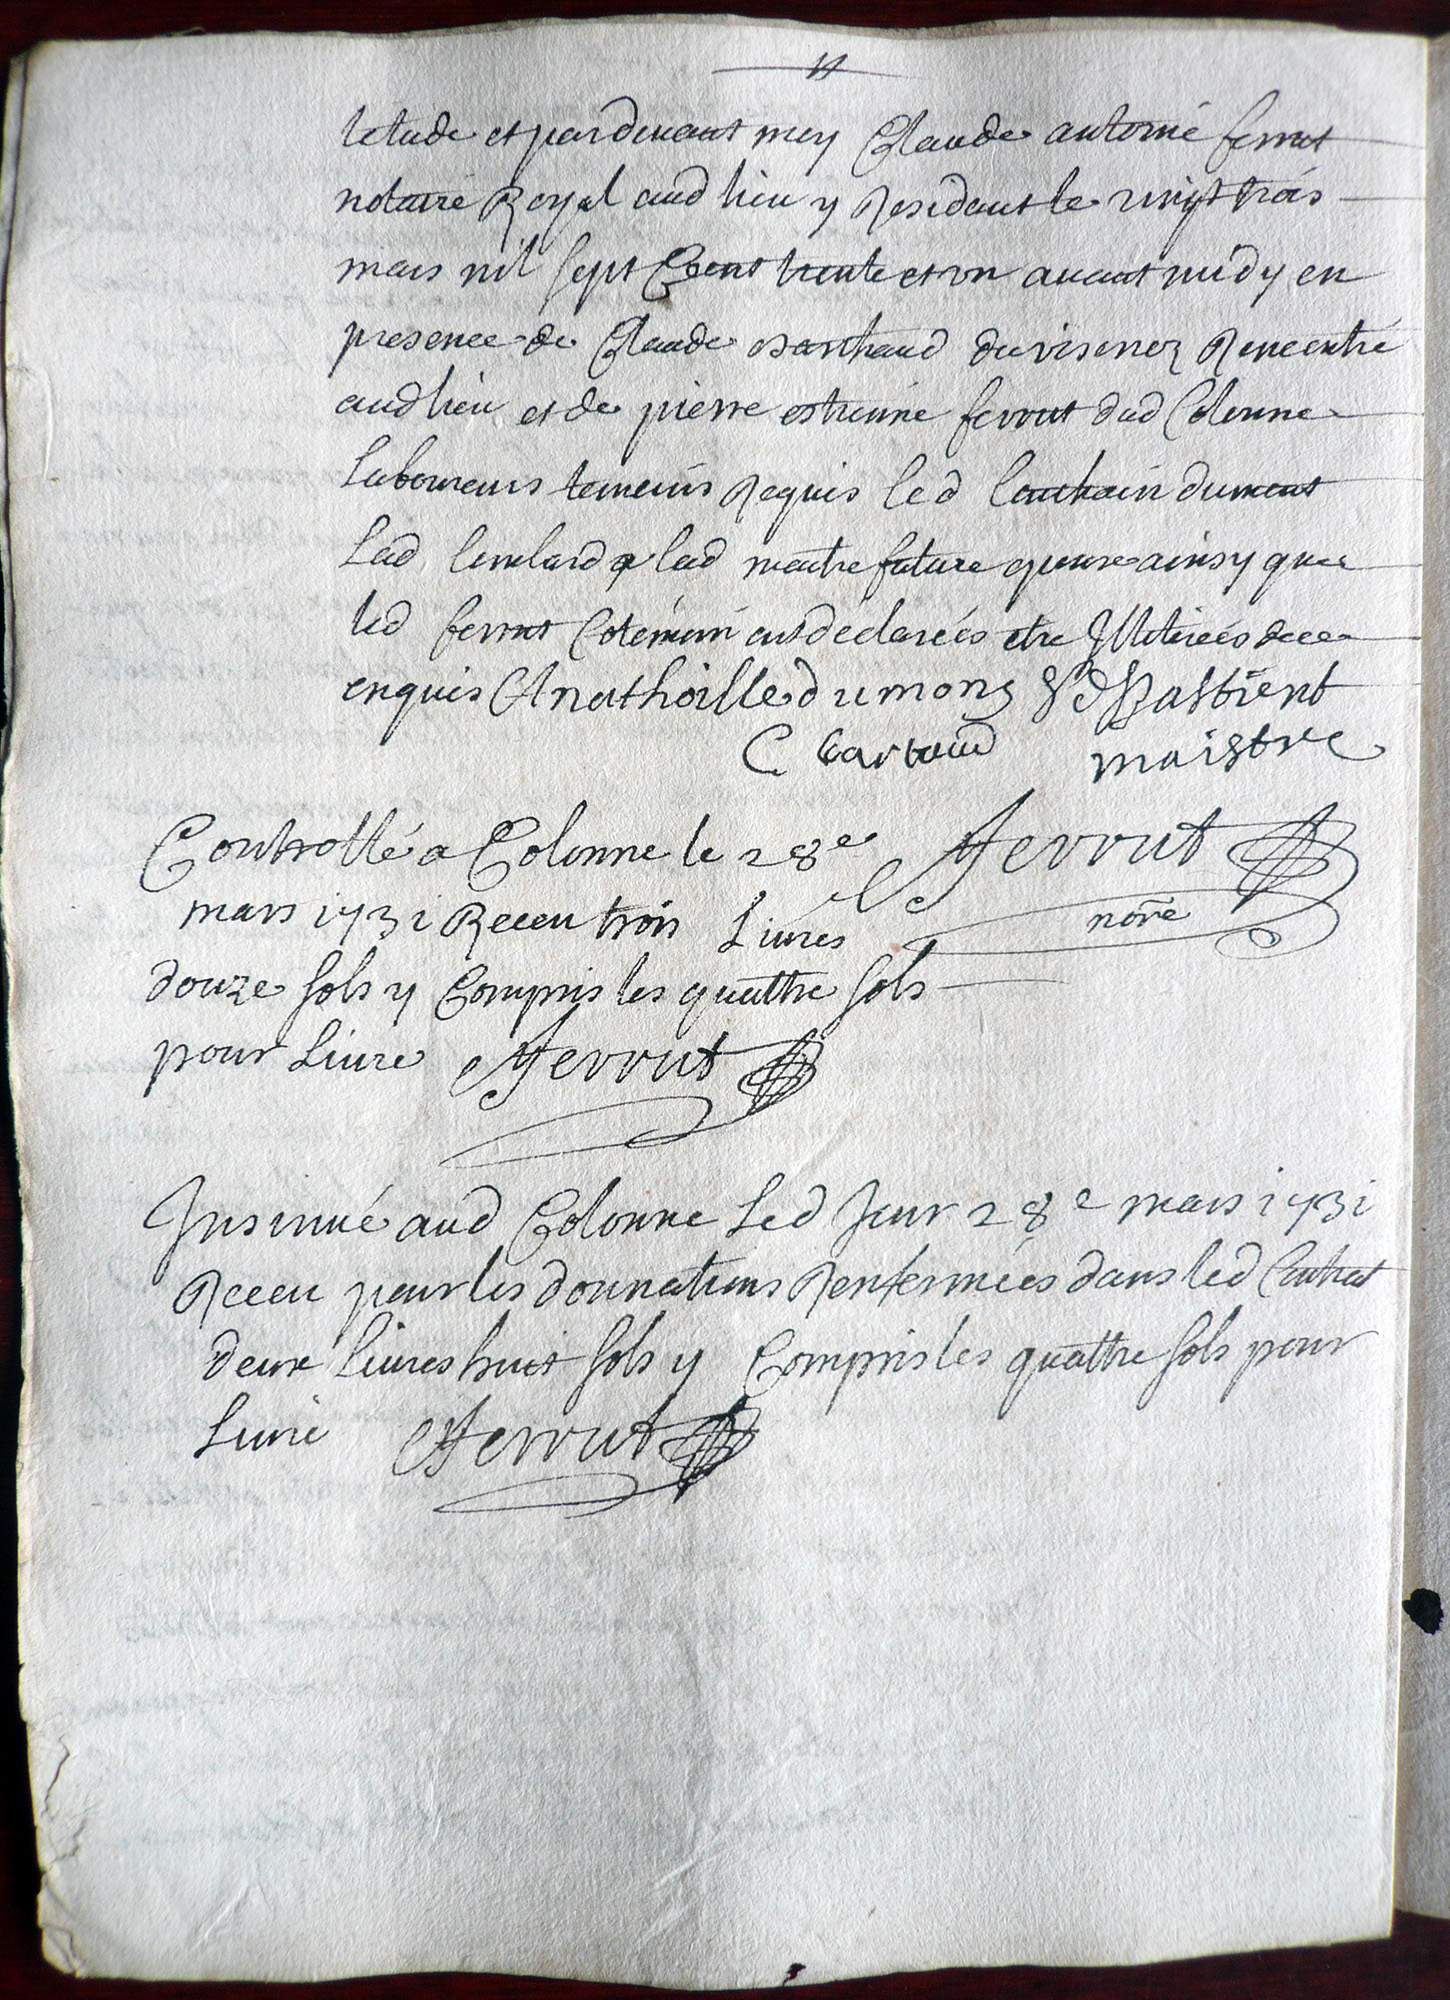 11
letude et pardevant moy Claude antoine ferrut
notaire Royal aud lieu y Residant le vingt trois
mars mil sept Cent trente et un avant midy en
presence de Claude barthaud de viseney Rencontré
aud lieu et de pierre estienne ferrut dud Colonne
Laboureurs temoins Requis led dumont
Lad a lad maitre future epouse ainsy que
led ferrut Cotémoin ont declarées etre Illiterées de ce
enquis Anathoille dumong Sebastient
C bartaud maistre
Controllé a Colonne le 28e ferrut
mars 1731 Receu trois Livres nore
douze sols y Compris les quattre sols
pour Livre ferrut
Insinué aud Colonne Led Jour 28e mars 1731
Receu pour les donnations Renfermées dans led Contrat
deux Livres huit sols y Compris les quattre sols pour
Livre ferrut